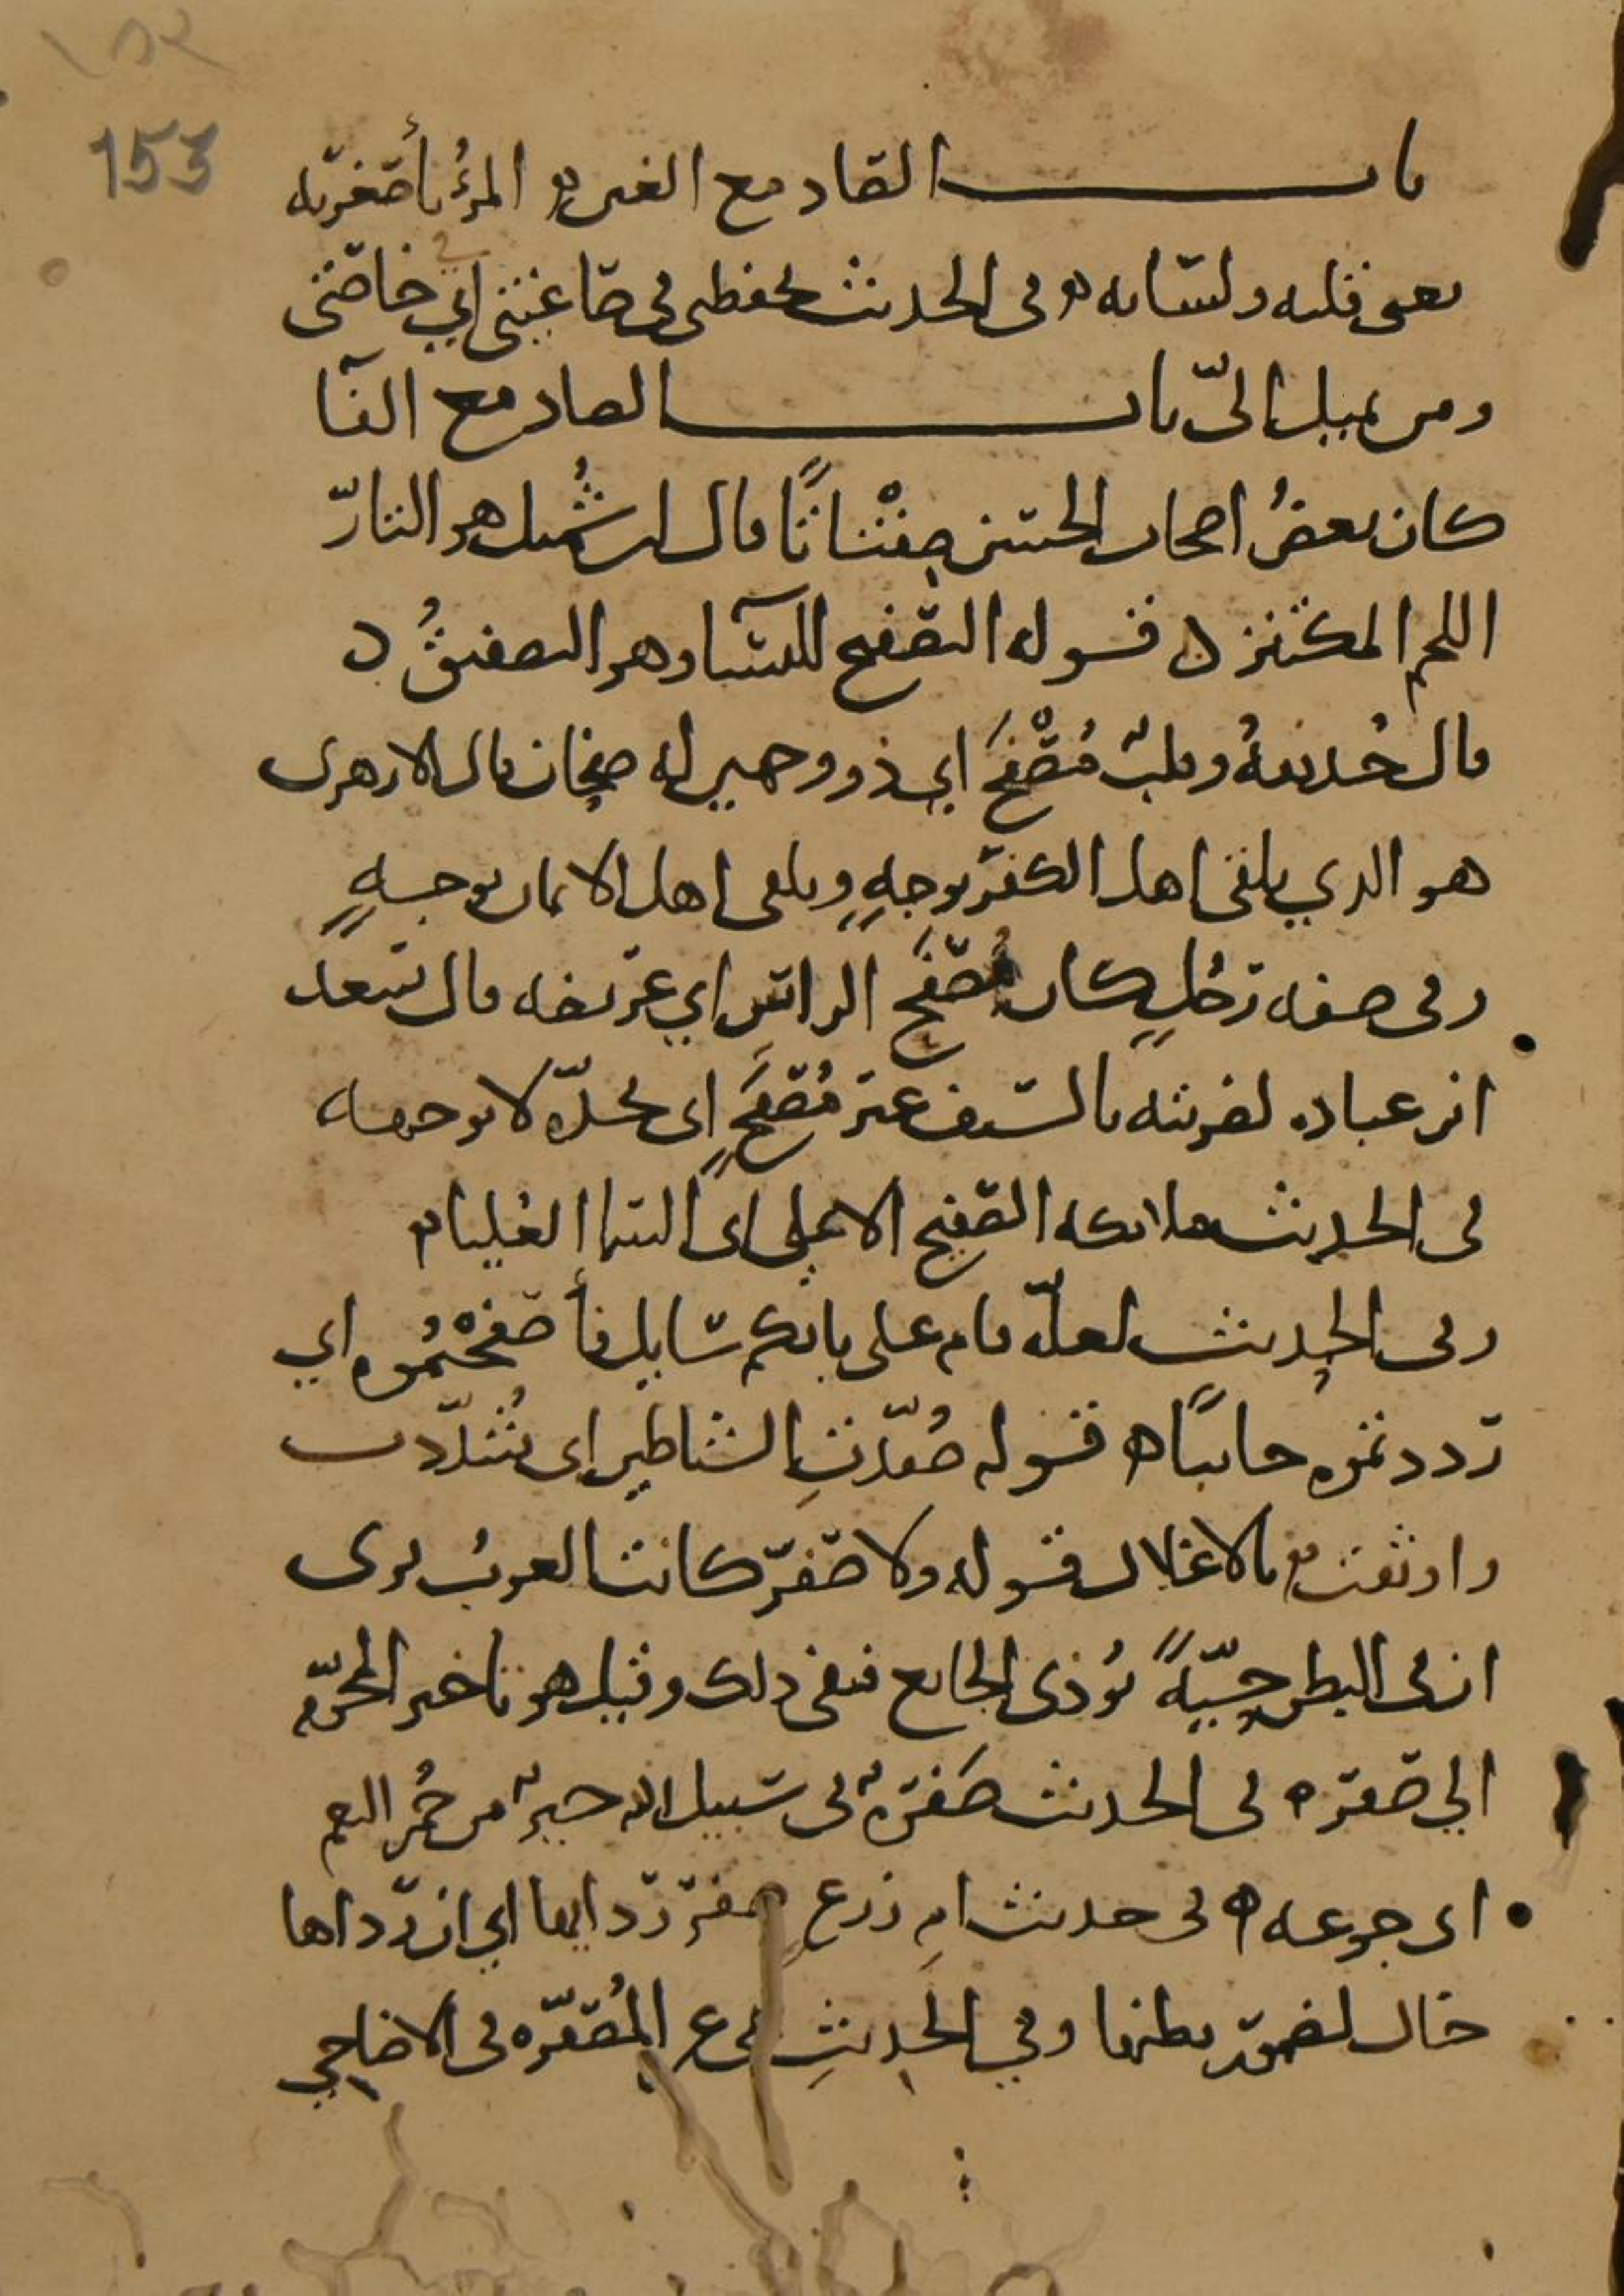 ١٥٢
153
باب الصاد مع الغين المرءُ بأصغريه
يعني قلبه ولسانه في الحديث تحفظني في صاغيتي اي خاصتي
ومن يميل اليّ باب الصاد مع الفآ
كان بعضُ اصحاب الحسن صِفْتاتًا قال ابن شُميل هو التارّ
اللحم المكتنز قوله التصفيح للنسآ وهو التصفيقُ
قال حُذيفةُ وقلبٌ مُصْفَح اي ذو وجهين له صفحان قال الازهري
هو الذي يلقى اهل الكفر بوجهٍ ويلقى اهل الايمان بوجهٍ
وفي صفه رجُلٍ كان مُصْفَح الراسِ اي عريضه قال سعد
ابن عباده لضربته بالسيف غير مُصْفَحٍ اي بحدّه لا بوجهه
في الحديث ملائكه الصفيح الاعلى اي السمآ العُليا
وفي الحديث لعلّه قام على بابكم سايل فأصفحْتُموه اي
رددتموه خايبًا قوله صُفّدتِ الشياطين اي شُدّدت
واوثقت بالاغلال قوله ولا صفر كانت العربُ ترى
ان في البطن حيّهً تُوذي الجايع فنفى ذلك وقيل هو تاخير المحرّم
الى صفر في الحديث صَفْرهٌ في سبيل الله خيرٌ من حُمر النعم
اي جوعه في حديث ام زرعٍ صفر ردايها اي ان رداها
خال لضمور بطنها وفي الحديثِ نهى عن المُصفّره في الاضاحي